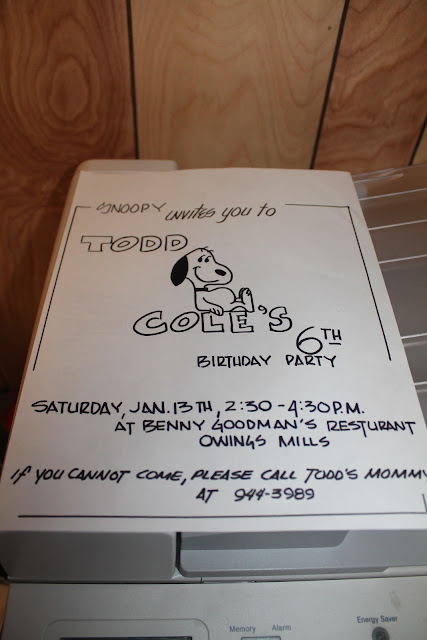 SNOOPY invites you to
TODD
COLE'S
6TH
BIRTHDAY PARTY
SATURDAY, JAN. 13TH, 2:30 - 4:30 P.M.
AT BENNY GOODMAN'S RESTURANT
OWINGS MILLS
If YOU CANNOT COME, PLEASE CALL TODD'S MOMMY
AT 944-3989
Memory Alarm Energy Saver